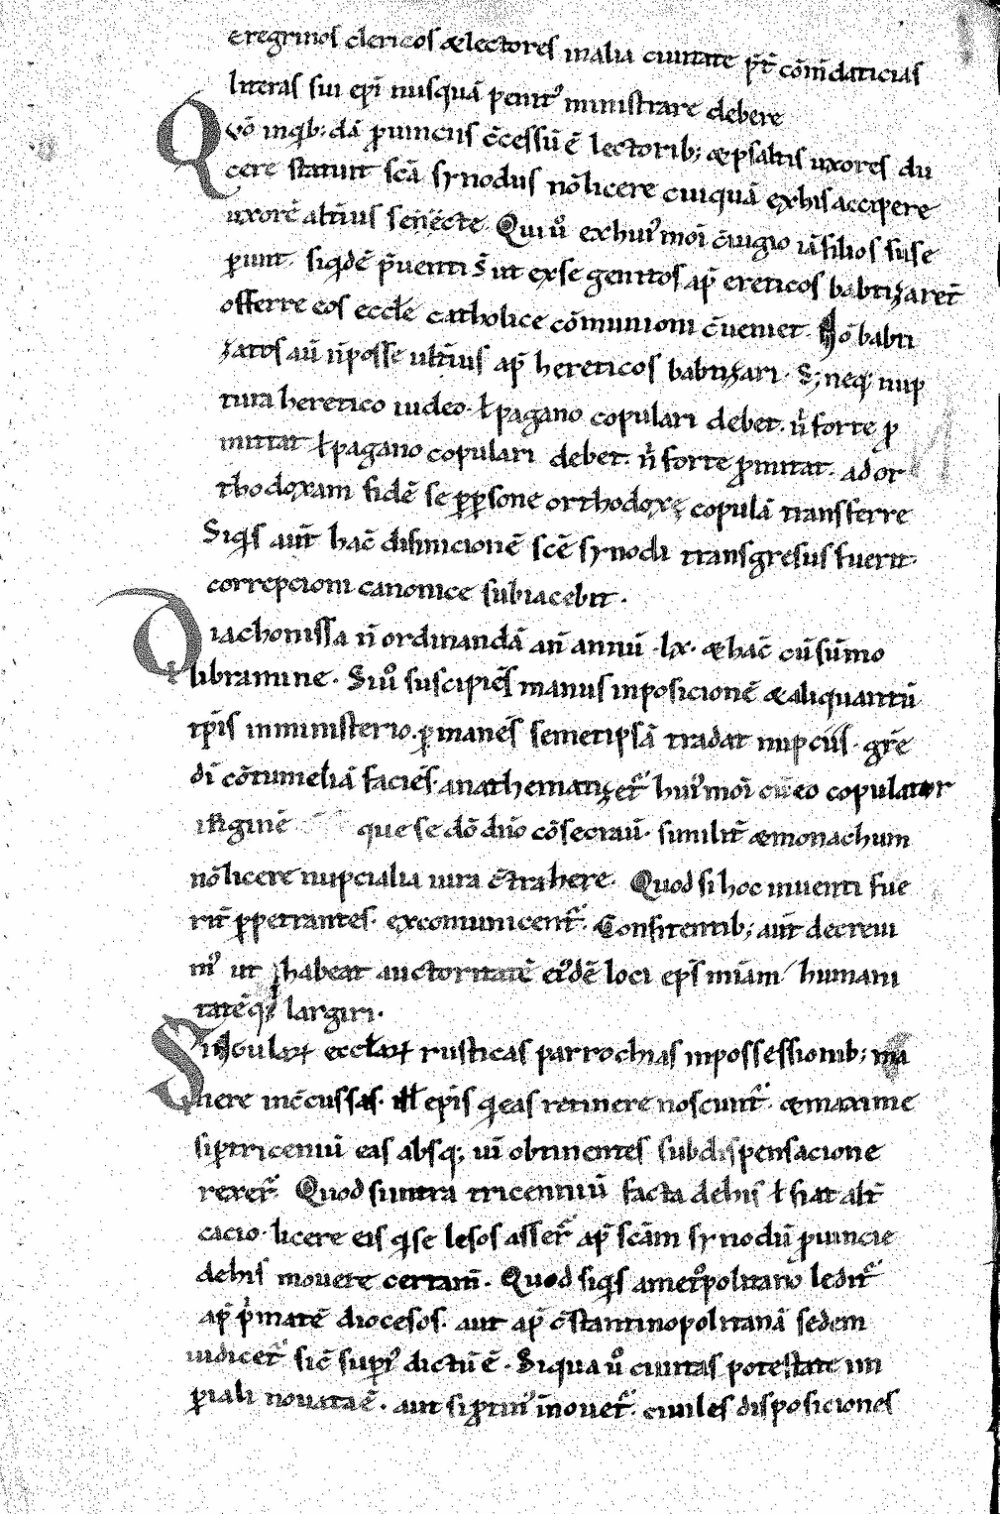 eregrinos clericos & lectores in alia ciuitate p̄t̄ cōm̄daticias
literas sui ep̄i nusquā penit᾽ ministrare debere
Qvō in q̄ib; dā p̄uinciis c̄cessū ē lectorib; & psaltis uxores du
cere statuit sc̄a synodus nō licere cuiquā ex his accipere
uxorē alt̄ius senēcte. Qui ů ex hui᾽moi c̄iugio iā filios suse
perunt. siq̄dē p̄uenti s̄ ut ex se genitos ap̄ ereticos babtizaret̄
offerre eos eccłe catholice cōmunioni c̄ueniet. Nō babti
zatos aū n̄ posse ult̄ius ap̄ hereticos babtizari. S; neq; nup
tura heretico iudeo. ł pagano copulari debet. n̄ forte p̄
mittat ł pagano copulari debet. n̄ forte p̄mitat. ad or
thodoxam fidē se p̄ p̄sone orthodoxę copulā transferre
Siq̄s aut̄ hac̄ difinicionē sc̄e synodi transgresus fuerit
correpcioni canonice subiacebit.
Diachonissa n̄ ordinandā an̄ annū .lx. & hac̄ cū sūmo
libramine. Si ů suscipiēs manus inposicionē & aliquantū
tp̄is in ministerio. p̄manēs semetipsā tradat nupciis. gr̄e
di cōtumeliā faciēs. anathematizet᾽ hui᾽moi cū eo copulator
que se dō dn̄o cōsecraū. similit̄ & monachum
nō licere nupcialia iura c̄trahere. Quod si hoc inuenti fue
rit̄ p̄petrantes. excomunicent᾽. Confitentib; aut̄ decreui
m᾽ ut habeat auctoritatē ei᾽dē loci ep̄s miām humani
tatēq; largiri.
Singularꝝ eccłarꝝ rusticas parrochias in possessionib; ma
nere inc̄cussas. ep̄is q̄i eas retinere noscunt᾽. & maxime
si p̄ tricenniū eas absq; ui obtinentes sub dispensacione
rexer̄. Quod si intra tricenniū facta de his ł fiat alt̄
cacio. licere eis q̄i se lesos asser̄ ap̄ scām synodū p̄uincie
de his mouere certam̄. Quod siq̄s a met᾽politano ledit᾽
ap̄ p̄matē dioceseos. aut ap̄ c̄stantinopolitanā sedem
iudicet᾽ sic̄ sup̄i᾽ dictū ē. Siqua ů ciuitas potestate im
periali nouata ē. aut si p̄tin᾽ inouet᾽. ciuiles disposiciones